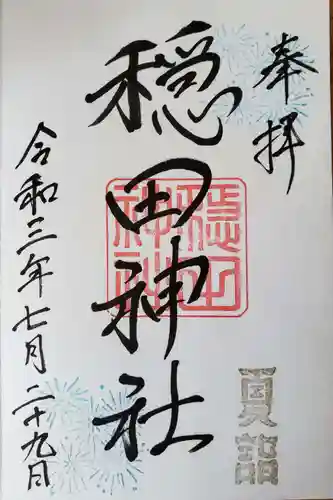 奉拝
穏田神社
穏田神社
夏詣
令和三年七月二十九日